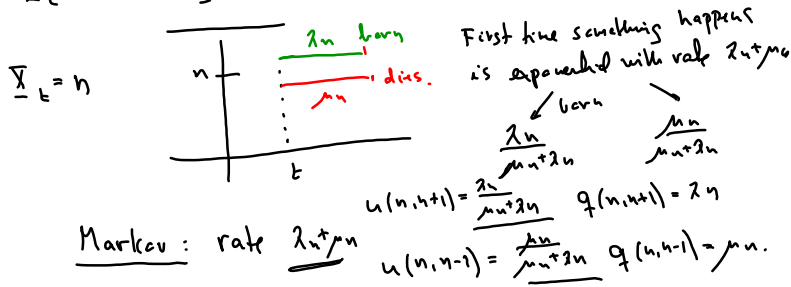 λn born
X_t = n
n
dies.
μn
t
First time something happens
is exponential with rate λn+μn
born
λn/(μn+λn) μn/(μn+λn)
u(n,n+1) = λn/(μn+λn) q(n,n+1) = λn
Markov: rate λn+μn
u(n,n-1) = μn/(μn+λn) q(n,n-1) = μn.